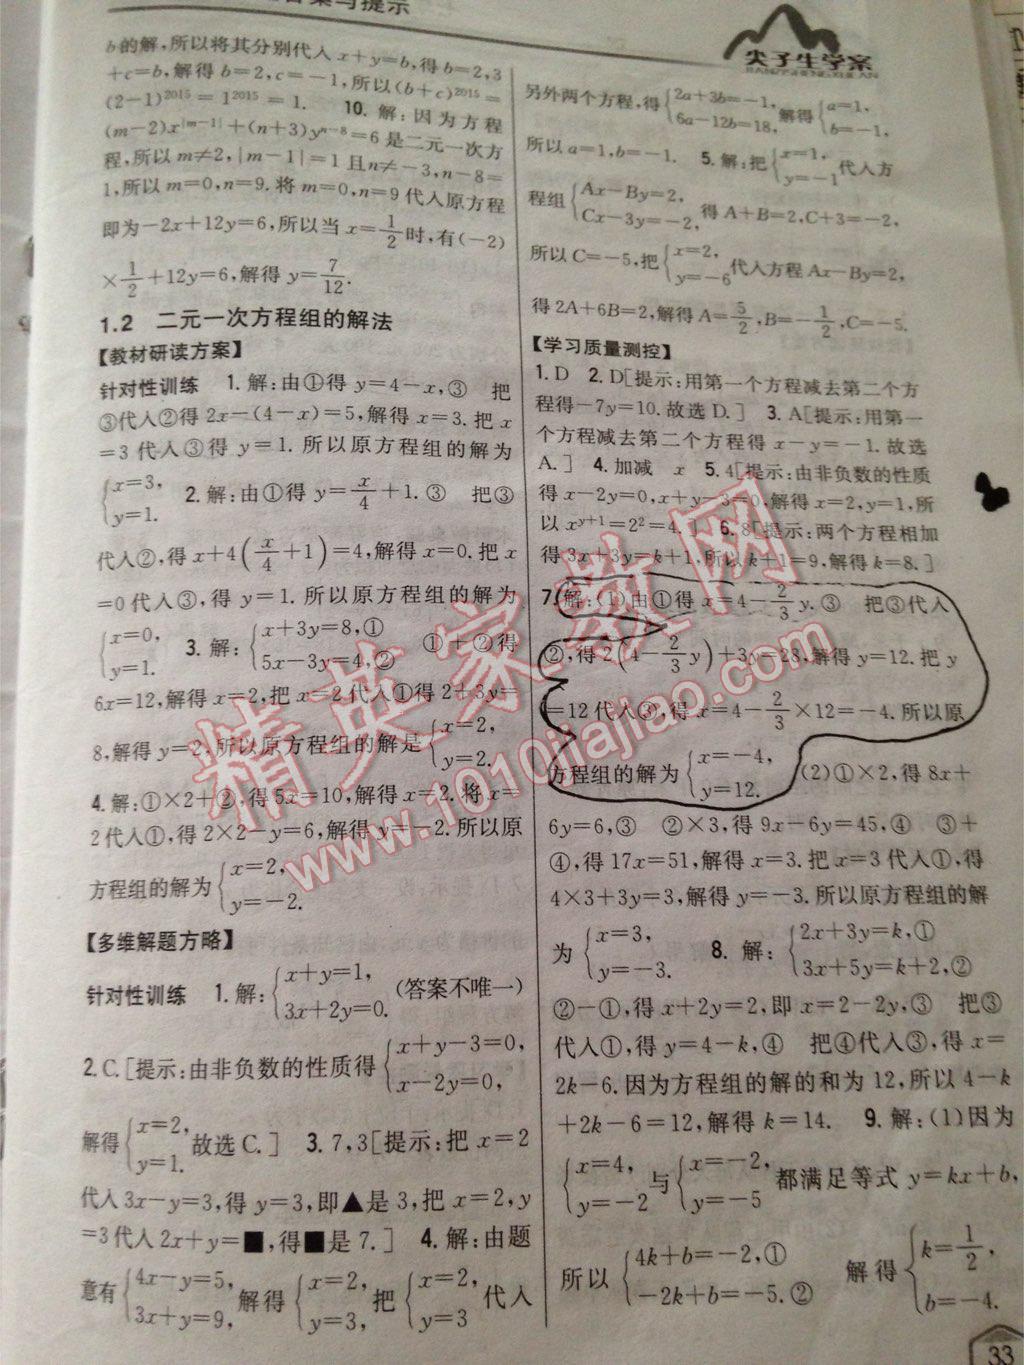 答案与提示
尖子生学案
JIANZISHENGXUEAN
b的解,所以将其分别代入x+y=b,得b=2,3
+c=b,解得b=2,c=-1,所以(b+c)²⁰¹⁵=
(2-1)²⁰¹⁵=1²⁰¹⁵=1. 10. 解:因为方程
(m-2)x^|m-1|+(n+3)y^(n-8)=6是二元一次方
程,所以m≠2,|m-1|=1且n≠-3,n-8=
1,所以m=0,n=9.将m=0,n=9代入原方程
即为-2x+12y=6,所以当x=1/2时,有(-2)
×1/2+12y=6,解得y=7/12.
1.2 二元一次方程组的解法
【教材研读方案】
针对性训练 1.解:由①得y=4-x,③ 把
③代入②得2x-(4-x)=5,解得x=3.把x
=3代入③得y=1.所以原方程组的解为
{x=3, y=1. 2.解:由①得y=x/4+1.③ 把③
代入②,得x+4(x/4+1)=4,解得x=0.把x
=0代入③,得y=1.所以原方程组的解为
{x=0, y=1. 3.解:{x+3y=8,① 5x-3y=4,② ①+②得
6x=12,解得x=2,把x=2代入①得2+3y=
8,解得y=2,所以原方程组的解是{x=2, y=2.
4.解:①×2+②,得5x=10,解得x=2.将x=
2代入①,得2×2-y=6,解得y=-2.所以原
方程组的解为{x=2, y=-2.
【多维解题方略】
针对性训练 1.解:{x+y=1, 3x+2y=0. (答案不唯一)
2.C.[提示:由非负数的性质得{x+y-3=0, x-2y=0,
解得{x=2, y=1. 故选C.] 3.7,3[提示:把x=2
代入3x-y=3,得y=3,即▲是3,把x=2,y
=3代入2x+y=■,得■是7.] 4.解:由题
意有{4x-y=5, 3x+y=9, 解得{x=2, y=3, 把{x=2, y=3 代入
另外两个方程,得{2a+3b=-1, 6a-12b=18, 解得{a=1, b=-1,
所以a=1,b=-1. 5.解:把{x=1, y=-1 代入方
程组{Ax-By=2, Cx-3y=-2, 得A+B=2,C+3=-2,
所以C=-5,把{x=2, y=-6 代入方程Ax-By=2,
得2A+6B=2,解得A=5/2,B=-1/2,C=-5.
【学习质量测控】
1.D 2.D[提示:用第一个方程减去第二个方
程得-7y=10.故选D.] 3.A[提示:用第一
个方程减去第二个方程得x-y=-1.故选
A.] 4.加减 x 5.4[提示:由非负数的性质
得x-2y=0,x+y-3=0,解得x=2,y=1,所
以x^(y+1)=2²=4.] 6.8[提示:两个方程相加
得3x+3y=k+1,所以k+1=9,解得k=8.]
7.解:(1)由①得x=4-2/3y.③ 把③代入
②,得2(4-2/3y)+3y=28,解得y=12.把y
=12代入③,得x=4-2/3×12=-4.所以原
方程组的解为{x=-4, y=12. (2)①×2,得8x+
6y=6,③ ②×3,得9x-6y=45,④ ③+
④,得17x=51,解得x=3.把x=3代入①,得
4×3+3y=3,解得y=-3.所以原方程组的解
为{x=3, y=-3. 8. 解:{2x+3y=k,① 3x+5y=k+2,②
②-①,得x+2y=2,即x=2-2y,③ 把③
代入①,得y=4-k,④ 把④代入③,得x=
2k-6.因为方程组的解的和为12,所以4-k
+2k-6=12,解得k=14. 9.解:(1)因为
{x=4, y=-2 与{x=-2, y=-5 都满足等式y=kx+b,
所以{4k+b=-2,① -2k+b=-5.② 解得{k=1/2, b=-4.
33
精英家教网
www.1010jiajiao.com